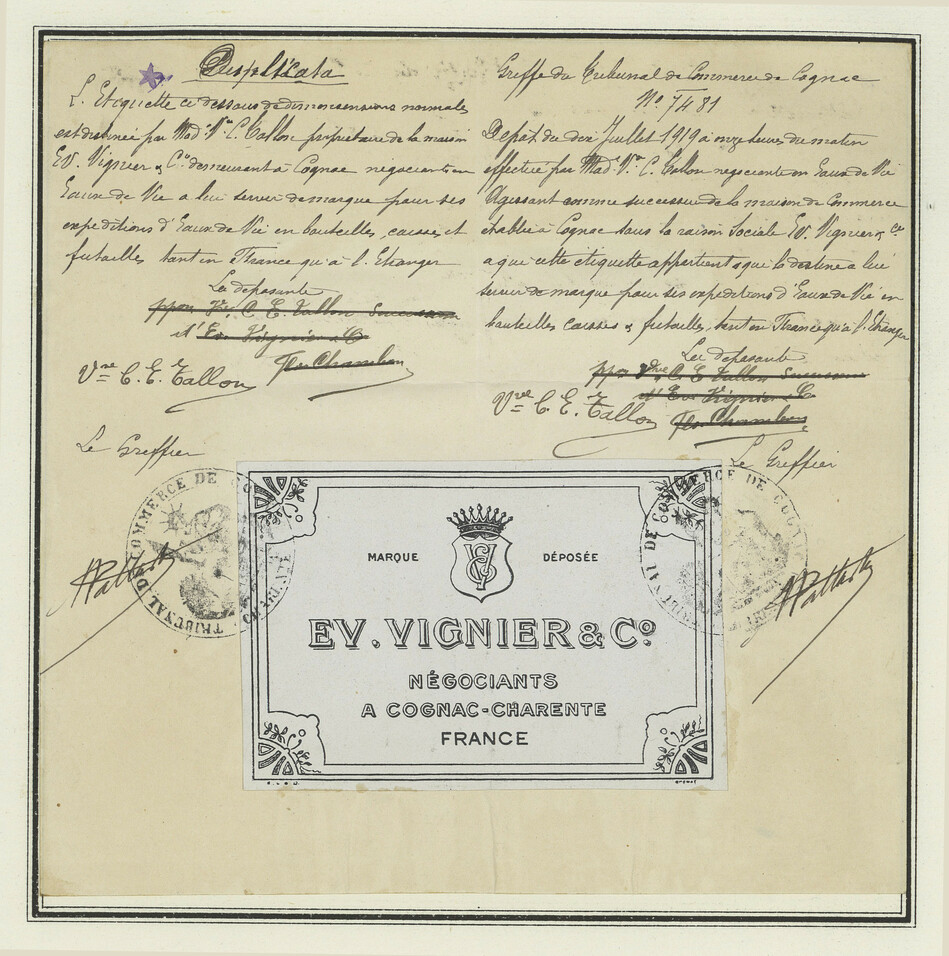 Duplicata
L'Etiquette ci dessous de dimensions normales
est destinée par Mad. Vve C. Tallon propriétaire de la maison
Ev. Vignier & Cie demeurant à Cognac négociants en
Eaux de Vie a lui servir de marque pour ses
expéditions d'Eaux de Vie en bouteilles, caisses et
futailles tant en France qu'à l'Etranger
La déposante
ppon Vve C. E. Tallon Successeur
d'Ev. Vignier & Co
Vve C. E. Tallon
Le Greffier
Greffe du Tribunal de Commerce de Cognac
No. 7481
Dépôt du dix Juillet 1919 à onze heures du matin
effectué par Mad. Vve C. Tallon négociante en Eaux de Vie
Agissant comme successeur de la maison de Commerce
établie à Cognac sous la raison Sociale Ev. Vignier & Cie
a que cette étiquette appartient & que la destine a lui
servir de marque pour ses expéditions d'Eaux de Vie en
bouteilles caisses & futailles, tant en France qu'à l'Etranger
La déposante
ppon Vve C. E. Tallon Successeur
d'Ev. Vignier & Co
Vve C. E. Tallon
Le Greffier
TRIBUNAL DE COMMERCE DE COGNAC
TRIBUNAL DE COMMERCE DE COGNAC
MARQUE DÉPOSÉE
EV. VIGNIER & Co
NÉGOCIANTS
A COGNAC-CHARENTE
FRANCE